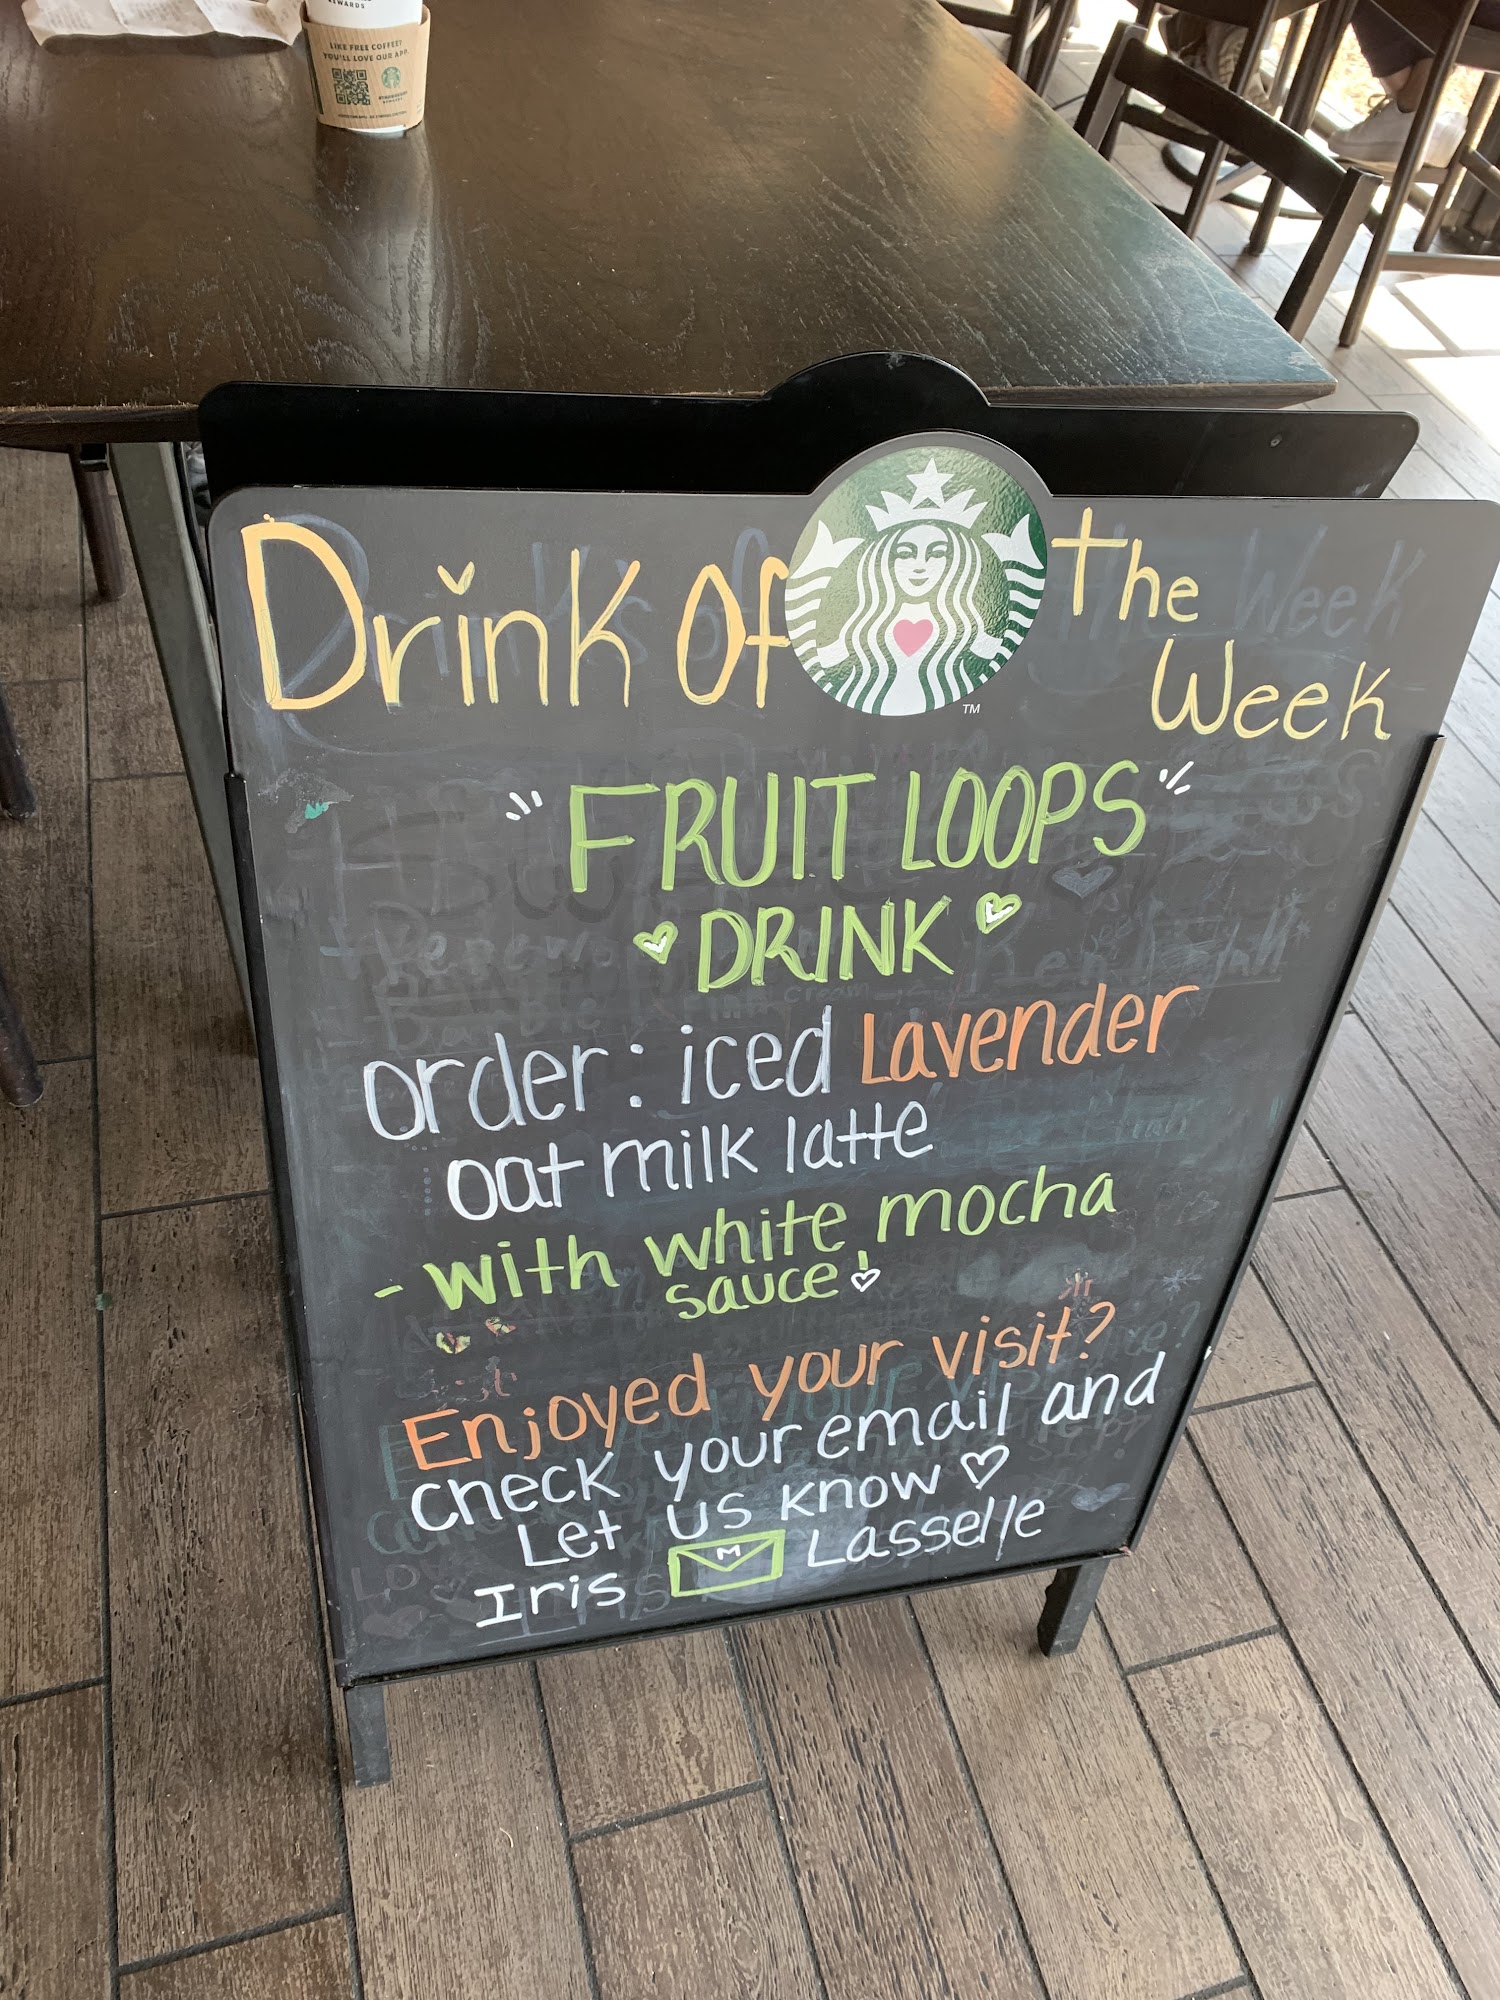 REWARDS
LIKE FREE COFFEE?
YOU'LL LOVE OUR APP.
Drink of the
Week
TM
"FRUIT LOOPS"
DRINK
order: iced Lavender
oat milk latte
- with white mocha
sauce!
Enjoyed your visit?
check your email and
Let us know
Iris M Lasselle